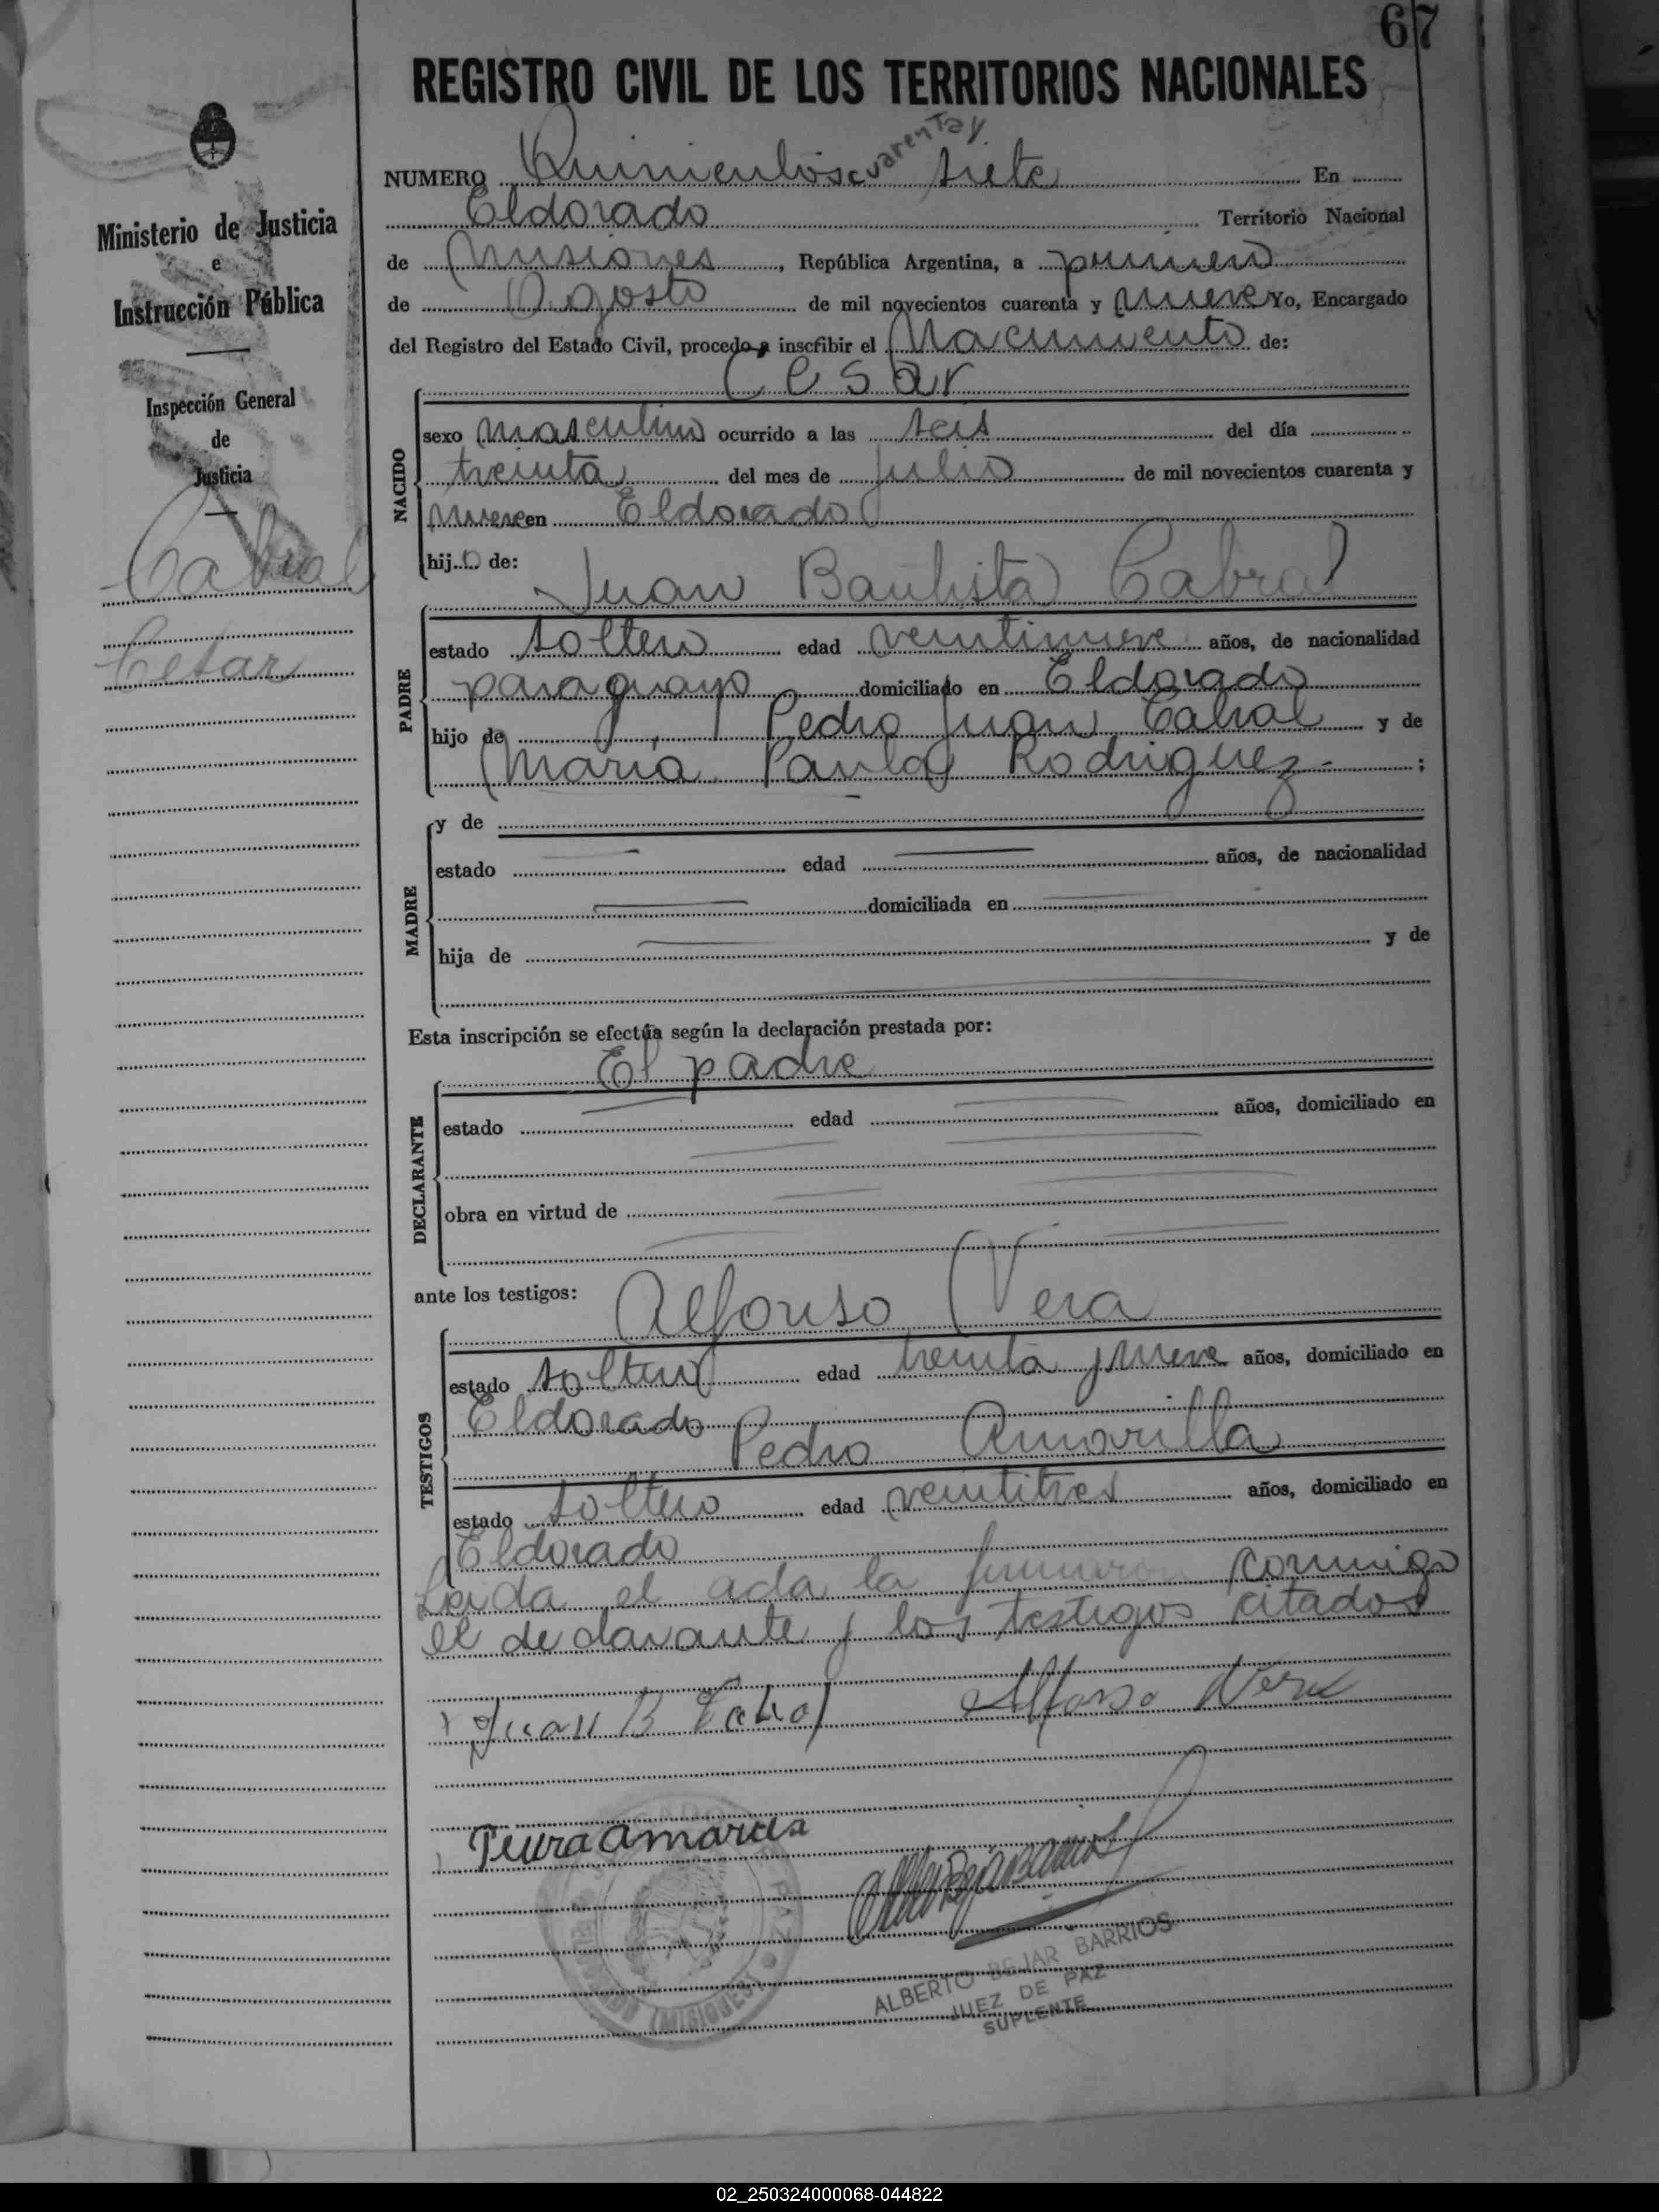 67
REGISTRO CIVIL DE LOS TERRITORIOS NACIONALES
Ministerio de Justicia
e
Instrucción Pública
Inspección General
de
Justicia
Cabral
Cesar
cuarenta y
NUMERO Quinientos siete En
Eldorado Territorio Nacional
de Misiones, República Argentina, a primero
de Agosto de mil novecientos cuarenta y nueve Yo, Encargado
del Registro del Estado Civil, procedo a inscribir el Nacimiento de:
Cesar
NACIDO
sexo masculino ocurrido a las seis del día
treinta del mes de Julio de mil novecientos cuarenta y
nueve en Eldorado
hijo de:
Juan Bautista Cabral
PADRE
estado soltero edad veintinueve años, de nacionalidad
paraguayo domiciliado en Eldorado
hijo de Pedro Juan Cabral y de
María Paula Rodriguez - ;
MADRE
y de
estado edad años, de nacionalidad
domiciliada en
hija de y de
Esta inscripción se efectúa según la declaración prestada por:
El padre
DECLARANTE
estado edad años, domiciliado en
obra en virtud de
ante los testigos:
Alfonso Vera
TESTIGOS
estado soltero edad treinta y nueve años, domiciliado en
Eldorado
Pedro Amarilla
estado soltero edad veintitres años, domiciliado en
Eldorado
Leida el acta la firmaron conmigo
el declarante y los testigos citados
Juan B Cabral Alfonso Vera
Amarilla
ALBERTO BEJAR BARRIOS
JUEZ DE PAZ
SUPLENTE
PAZ
ELDORADO (MISIONES)
02_250324000068-044822